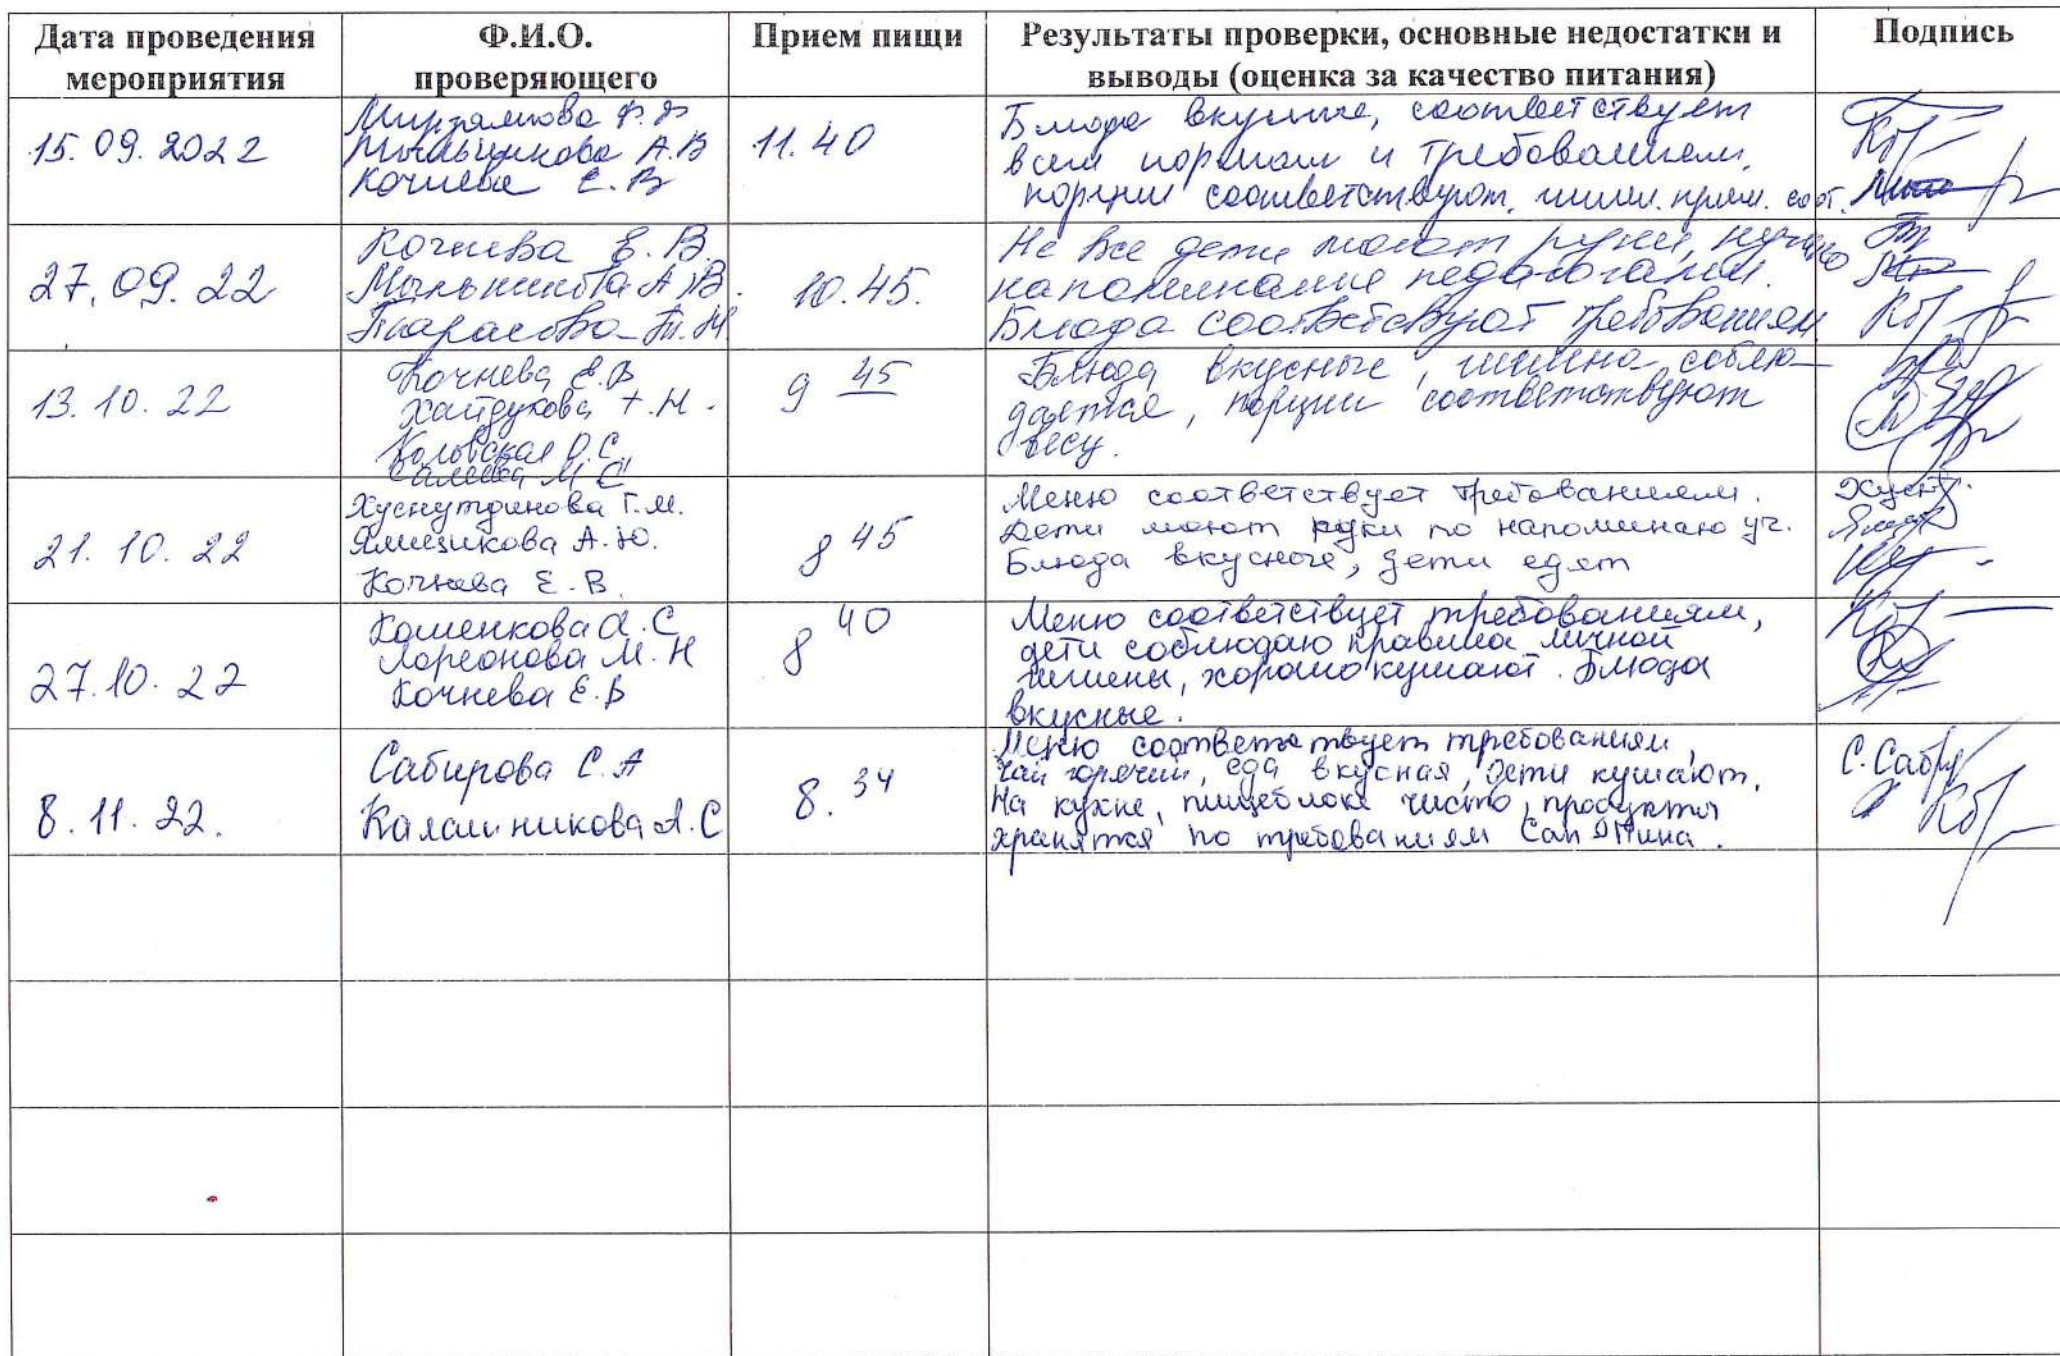 Дата проведения Ф.И.О. Прием пищи Результаты проверки, основные недостатки и Подпись
мероприятия проверяющего выводы (оценка за качество питания)
15.09.2022
А.В
Кочнева Е.В
11.40
Блюда вкусные, соответствует
всем нормам и требованием,
порции соответствуют,
27.09.22
Кочнева Е.В.
Мыльникова А.В.
Тарасова
10.45.
Не все дети моют руки, нужно
напоминание педагогами.
Блюда соответствуют требованиям
13.10.22
Кочнева Е.В
Хайдукова Т.Н.
О.С.
М С
9 45
Блюда вкусные, гигиена соблю-
дается, порции соответствуют
весу.
21.10.22
Хуснутдинова Г.М.
Ямщикова А.Ю.
Кочнева Е.В.
8 45
Меню соответствует требованием.
Дети моют руки по напоминаю уч.
Блюда вкусного, дети едят
27.10.22
Каменкова А.С
М.Н
Кочнева Е.В
8 40
Меню соответствует требованиям,
дети соблюдаю правила личной
гигиены, хорошо кушают. Блюда
вкусные.
8.11.22.
Сабирова С.А
Каламникова А.С
8.34
Меню соответствует требованиям,
Чай горячий, еда вкусная, дети кушают.
На кухне, пищеблоке чисто, продукты
хранятся по требованиям СанПина.
С.Сабр